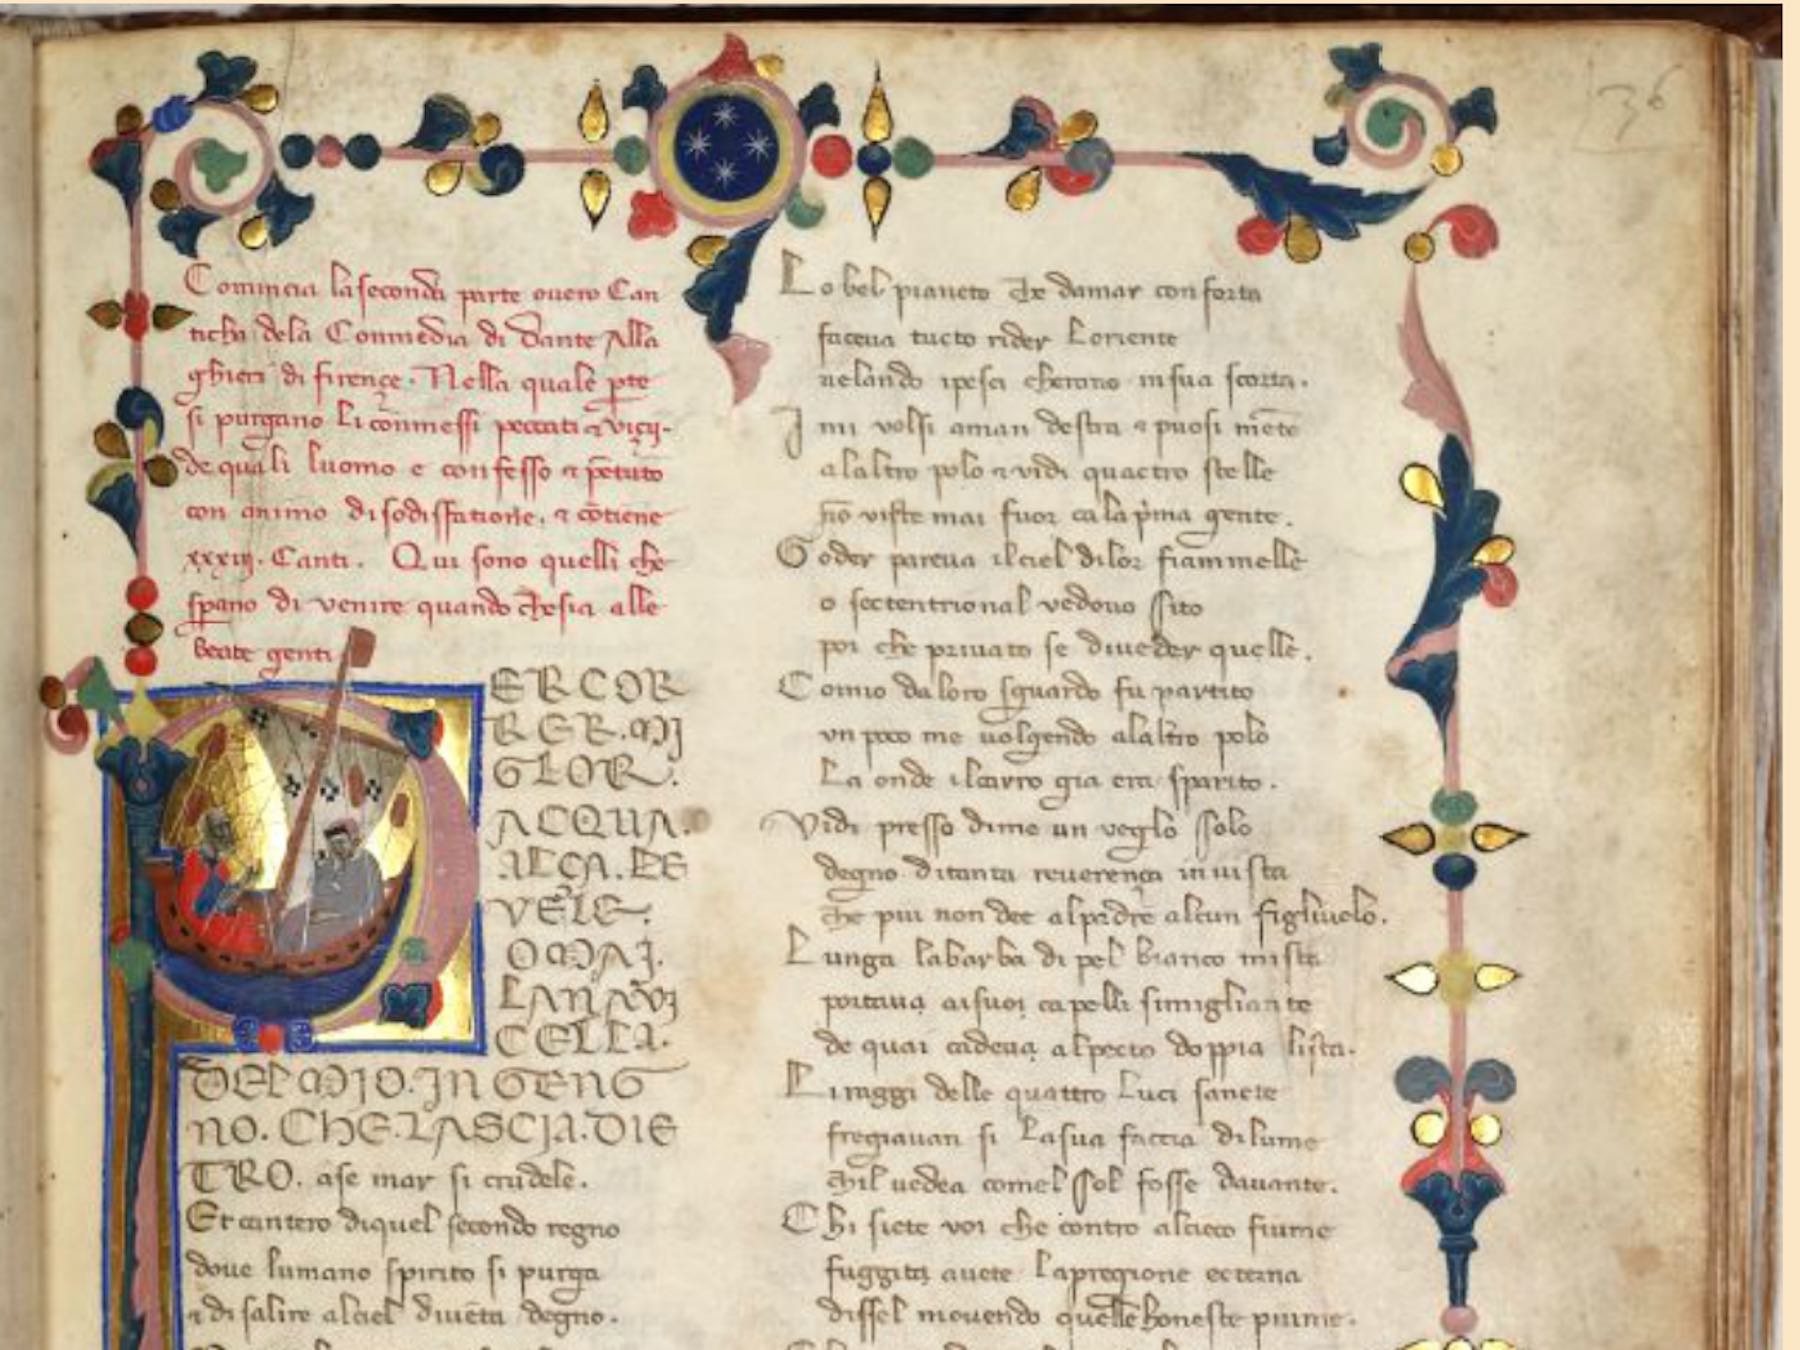 36
Comincia la seconda parte overo Can
ticha dela Conmedia di Dante Alla
ghieri di firençe. Nella quale pte
si purgano li conmessi peccati ⁊ viçij.
de quali luomo e confesso ⁊ pētuto
con animo di sodisfatione. ⁊ cōtiene
xxxiij. Canti. Qui sono quelli che
sperano di venire quando chesia alle
beate genti
PER COR
RER. MJ
GLOR.
ACQUA.
ALÇA. LE
VELE.
OMAJ.
LA NAVJ
CELLA.
DEL MJO. JNGENG
NO. CHE. LASCJA. DJE
TRO. ase mar si crudele.
Et cantero diquel secondo regno
doue lumano spirito si purga
⁊ di salire alciel diuēta degno.
Lo bel pianeto che damar conforta
faceua tucto rider loriente
uelando ipesci cherano insua scorta.
I mi volsi aman destra ⁊ puosi mēte
alaltro polo ⁊ vidi quactro stelle
nō viste mai fuor cala pima gente.
Goder pareua ilciel dilor fiammelle
o sectentrional vedouo sito
poi che priuato se diueder quelle.
Como daloro sguardo fu partito
vn poco me uolgendo alaltro polo
La onde ilcarro gia era sparito.
Vidi presso dime un veglo solo
degno ditanta reuerença inuista
che piu non dee alpadre alcun figliuolo.
Lunga labarba di pel bianco mista
portaua aisuoi capelli simigliante
de quai cadeua alpecto doppia lista.
Liraggi delle quattro luci sancte
fregiauan si lasua faccia dilume
chil uedea comel sol fosse dauante.
Chi siete voi che contro alcieco fiume
fuggita auete lapregione ecterna
dissel mouendo quelle honeste piume.